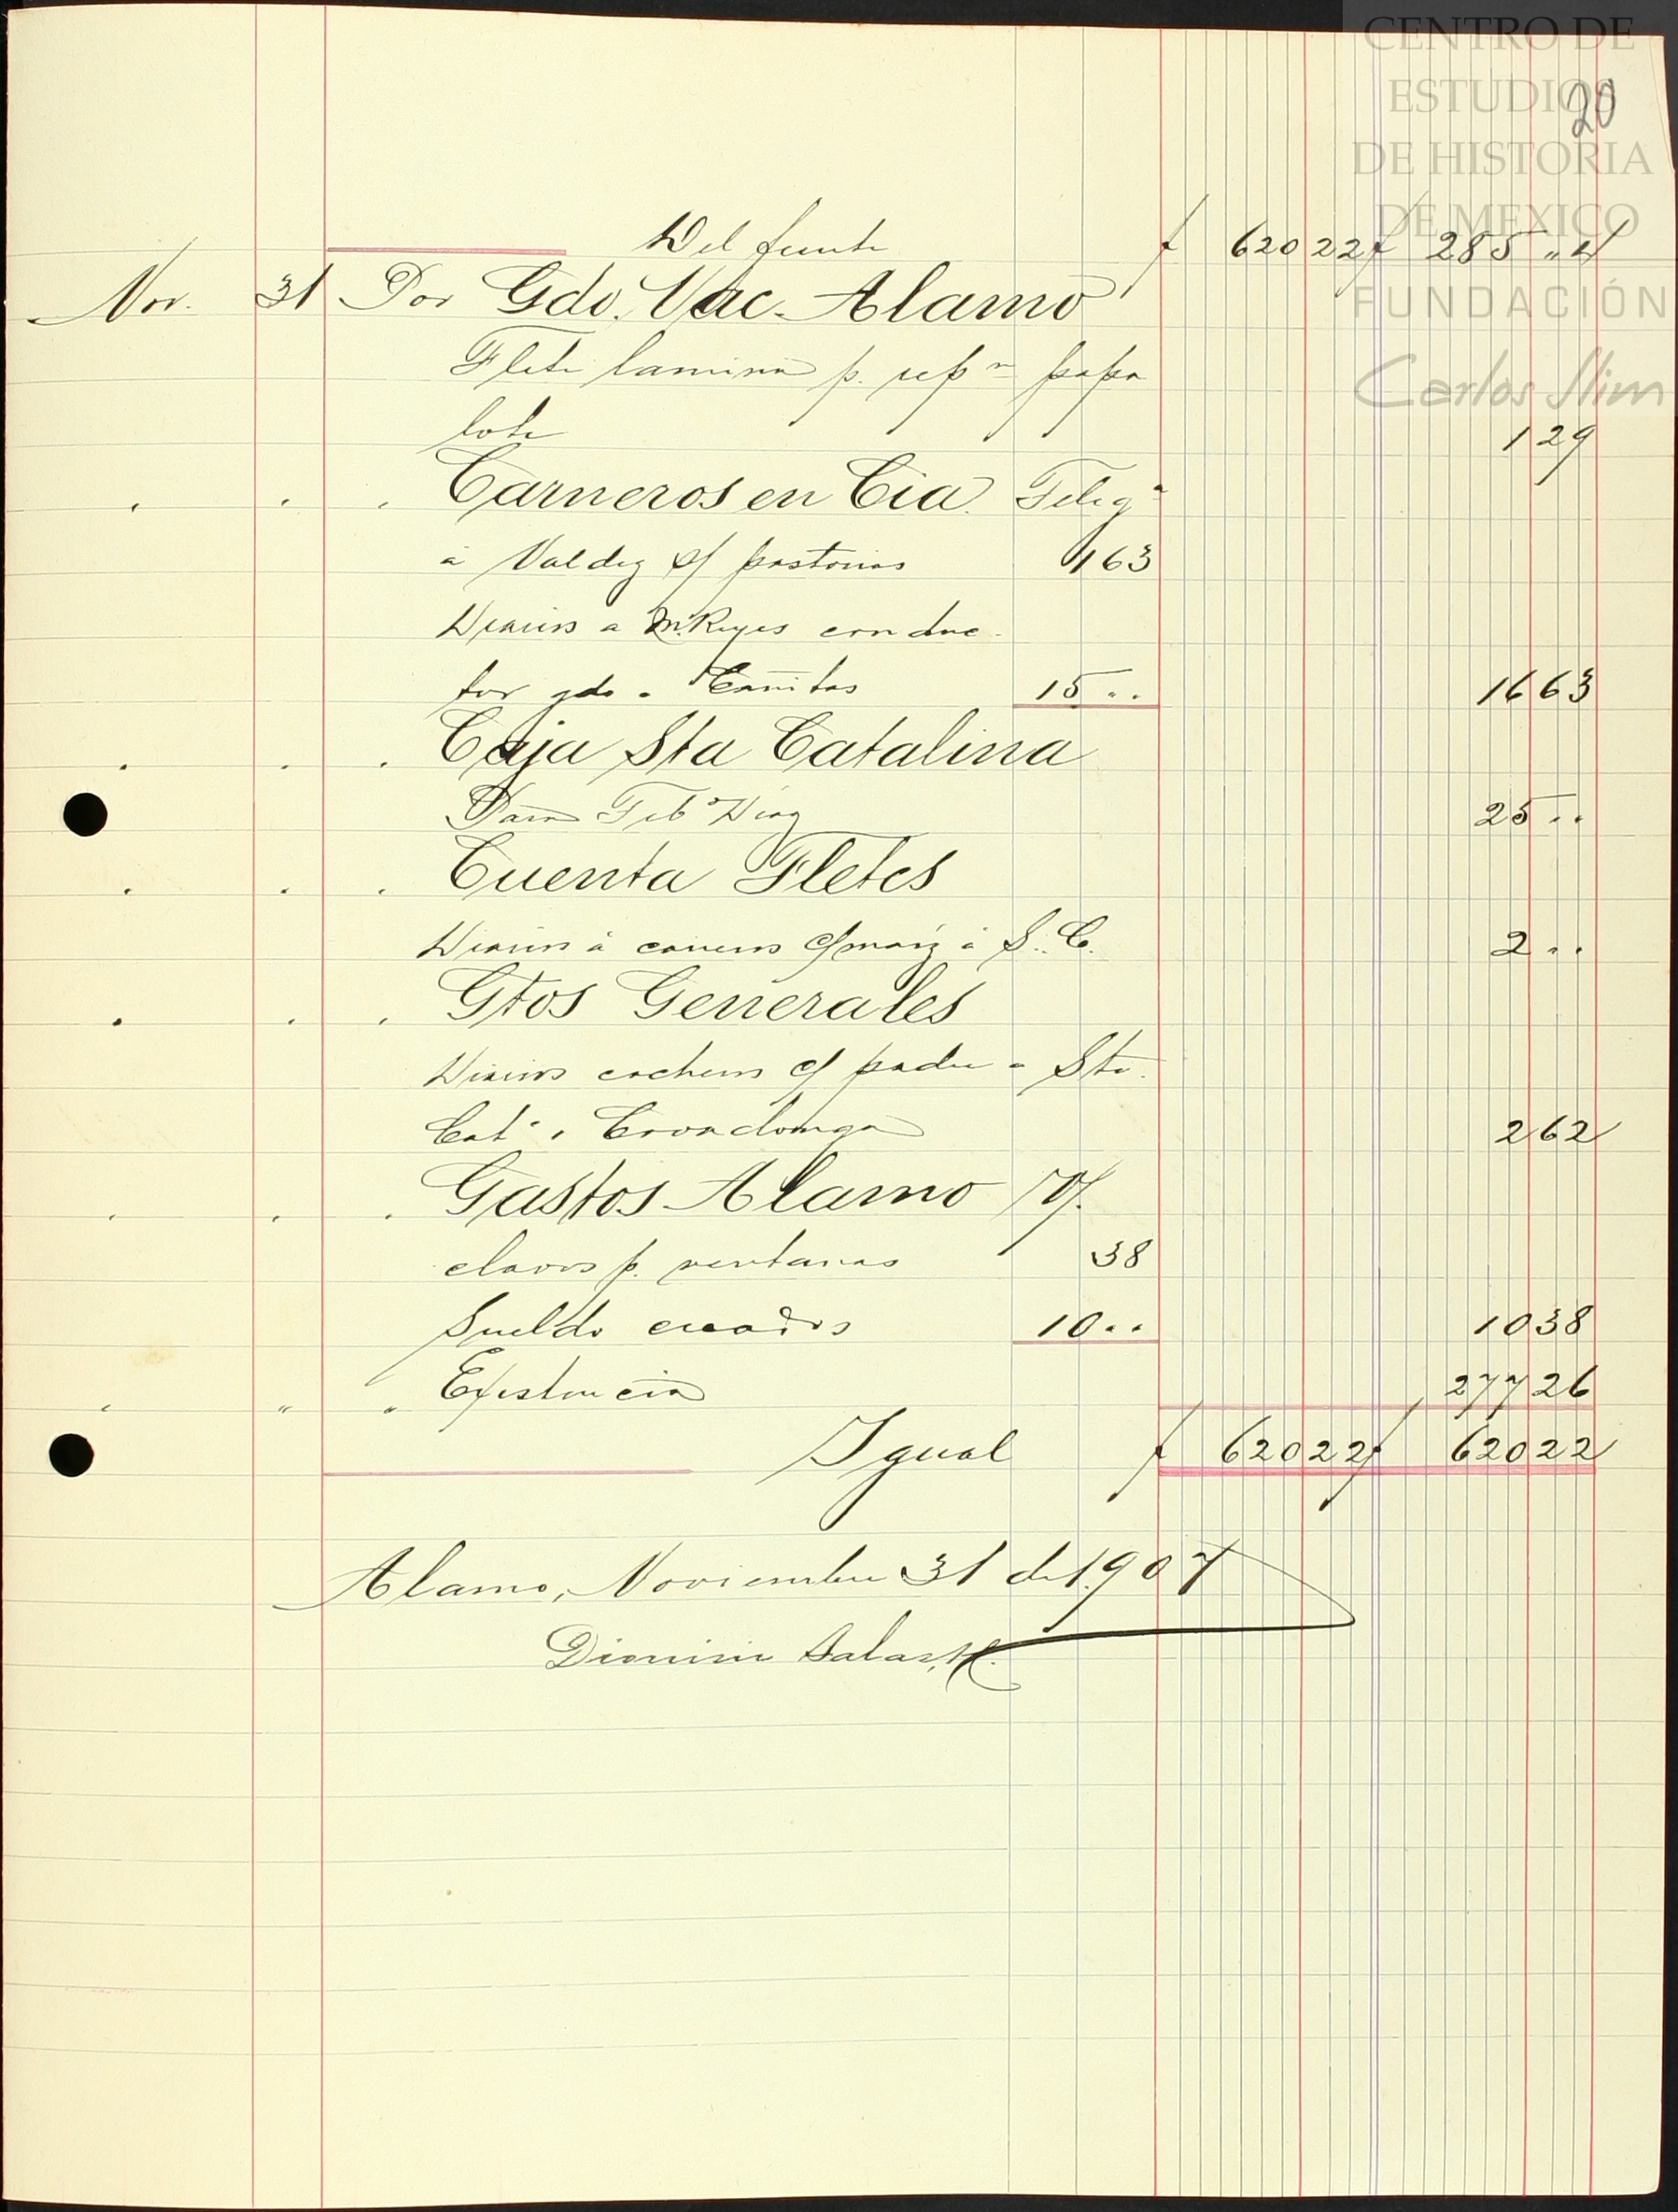 CENTRO DE
ESTUDIOS
DE HISTORIA
DE MEXICO
FUNDACIÓN
Carlos Slim
20
Del frente $ 620 22 $ 285 04
Nov. 31 Por Gdo. Vac. Alamo
Flete lamina p. repn papa
lote 1 29
" " " Carneros en Cia. Telega
á Valdez s/ pastorias 1 63
Diarios a M. Reyes conduc-
tor gdo a Cañitas 15 " " 16 63
" " " Caja Sta Catalina
Feb Diaz 25 " "
" " " Cuenta Fletes
Diarios á carreros c/ maiz á S. C. 2 " "
" " " Gtos Generales
Diarios cochero c/ padre a Sta.
Cata. y Covadonga 2 62
" " " Gastos Alamo
clavos p. ventanas 38
Sueldo criados 10 " " 10 38
" " " Existencia 277 26
Igual $ 620 22 $ 620 22
Alamo, Noviembre 31 de 1907
Dionisio Salas H.